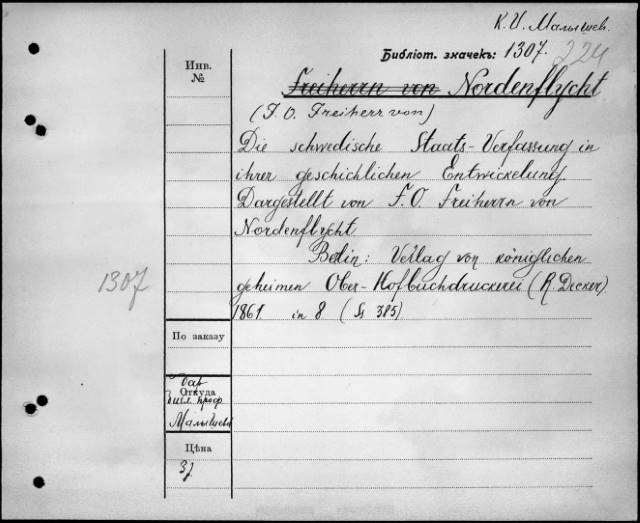 К. И. Малышев.
Библіот. значекъ: 1307. 224
Инв.
№
Freiherrn von Nordenflycht
(F. O. Freiherr von)
Die schwedische Staats-Verfassung in
ihrer geschichlichen Entwickelung.
Dargestellt von F. O. Freiherrn von
Nordenflycht.
Berlin: Verlag von königlichen
1307
geheimen Ober-Hofbuchdruckerei (R. Decker).
1861. in 8 (S 385)
По заказу
Дар
Откуда
библ. проф.
Малышева
Цѣна
3